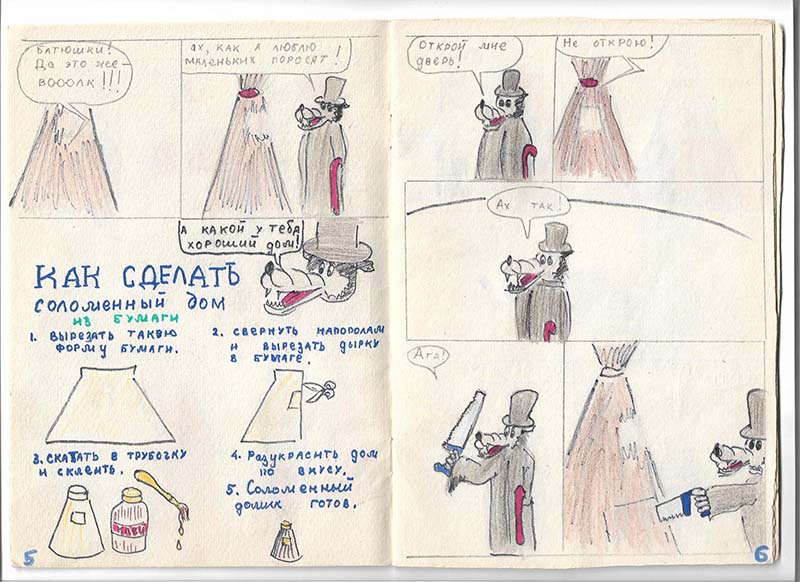 БАТЮШКИ!
Да это же –
ВОООЛК!!!
АХ, КАК Я ЛЮБЛЮ
МАЛЕНЬКИХ ПОРОСЯТ!
А КАКОЙ У ТЕБЯ
ХОРОШИЙ ДОМ!
КАК СДЕЛАТЬ
СОЛОМЕННЫЙ ДОМ
ИЗ БУМАГИ
1. ВЫРЕЗАТЬ ТАКУЮ
ФОРМУ БУМАГИ.
2. СВЕРНУТЬ НАПОПОЛАМ
И ВЫРЕЗАТЬ ДЫРКУ
В БУМАГЕ.
3. СКАТАТЬ В ТРУБОЧКУ
И СКЛЕИТЬ.
КЛЕЙ
4. РАЗУКРАСИТЬ ДОМ
ПО ВКУСУ.
5. СОЛОМЕННЫЙ
ДОМИК ГОТОВ.
5
ОТКРОЙ МНЕ
ДВЕРЬ!
Не открою!
Ах так!
Ага!
6